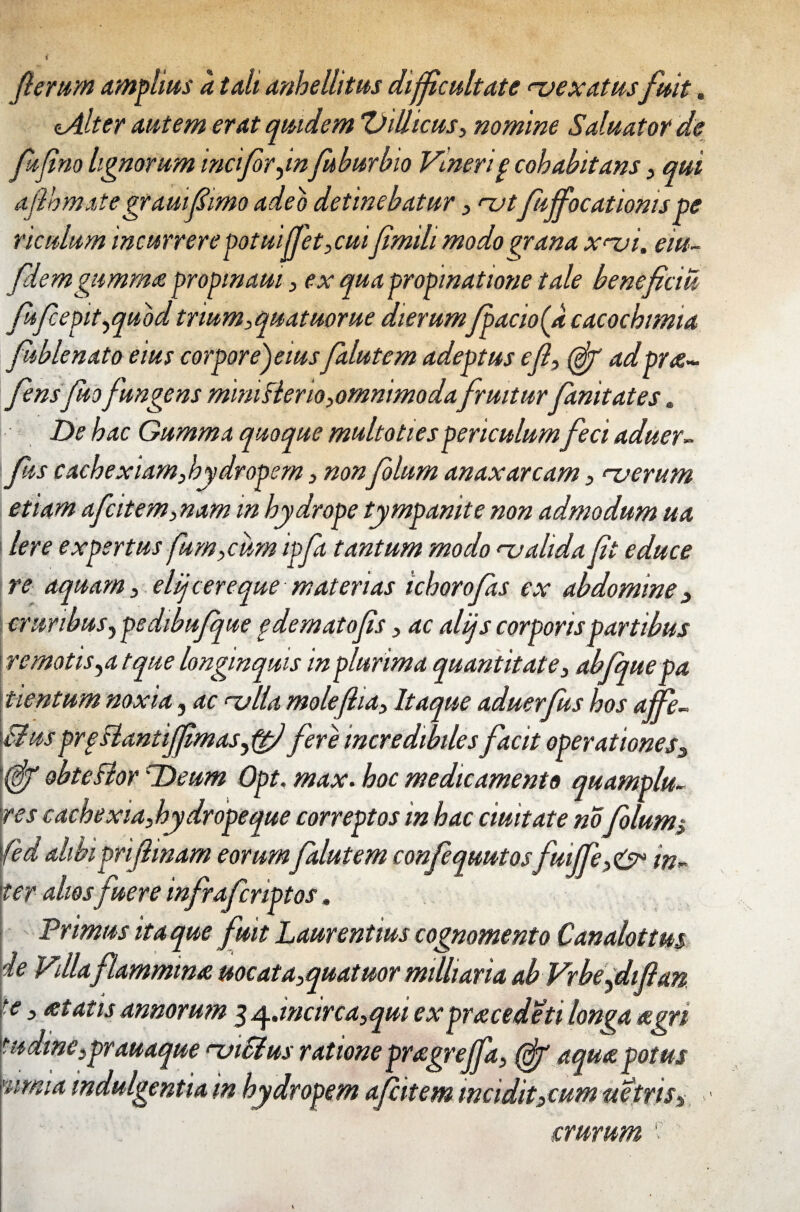 ſterum amplius à tali anhellitus difficultate vexatus fuit.
Alter autem erat quidem Villicus, nomine Saluator de
fuſino lignorum inciſor, in ſuburbio Vinerię cohabitans, qui
aſthmate grauiſsimo adeò detinebatur, vt ſuffocationis pe
riculum incurrere potuiſſet, cui ſimili modo grana xvi. eiu-
ſdem gummæ propinaui, ex qua propinatione tale beneficiũ
ſuſcepit, quòd trium, quatuorue dierum ſpacio (à cacochimia
ſublenato eius corpore) eius ſalutem adeptus eſt, & ad præ-
ſens ſuo fungens miniſterio, omnimoda fruitur ſanitates.
De hac Gumma quoque multoties periculum feci aduer-
ſus cachexiam, hydropem, non ſolum anaxarcam, verum
etiam aſcitem, nam in hydrope tympanite non admodum ua
lere expertus ſum, cùm ipſa tantum modo valida ſit educe
re aquam, elijcereque materias ichoroſas ex abdomine,
cruribus, pedibuſque ędematoſis, ac alijs corporis partibus
remotis, atque longinquis in plurima quantitate, abſque pa
tientum noxia, ac vlla moleſtia, Itaque aduerſus hos affe-
ctus pręſtantiſſimas, & ferè incredibiles facit operationes,
& obteſtor Deum Opt. max. hoc medicamento quamplu-
res cachexia, hydropeque correptos in hac ciuitate nõ ſolum;
ſed alibi priſtinam eorum ſalutem conſequutos fuiſſe, & in-
ter alios fuere infraſcriptos.
Primus itaque fuit Laurentius cognomento Canalottus
de Villa flamminæ uocata, quatuor milliaria ab Vrbe, diſtan
te, ætatis annorum 34. incirca, qui ex præcedẽti longa ægri
tudine, prauaque victus ratione prægreſſa, & aquæ potus
nimia indulgentia in hydropem aſcitem incidit, cum uẽtris,
crurum